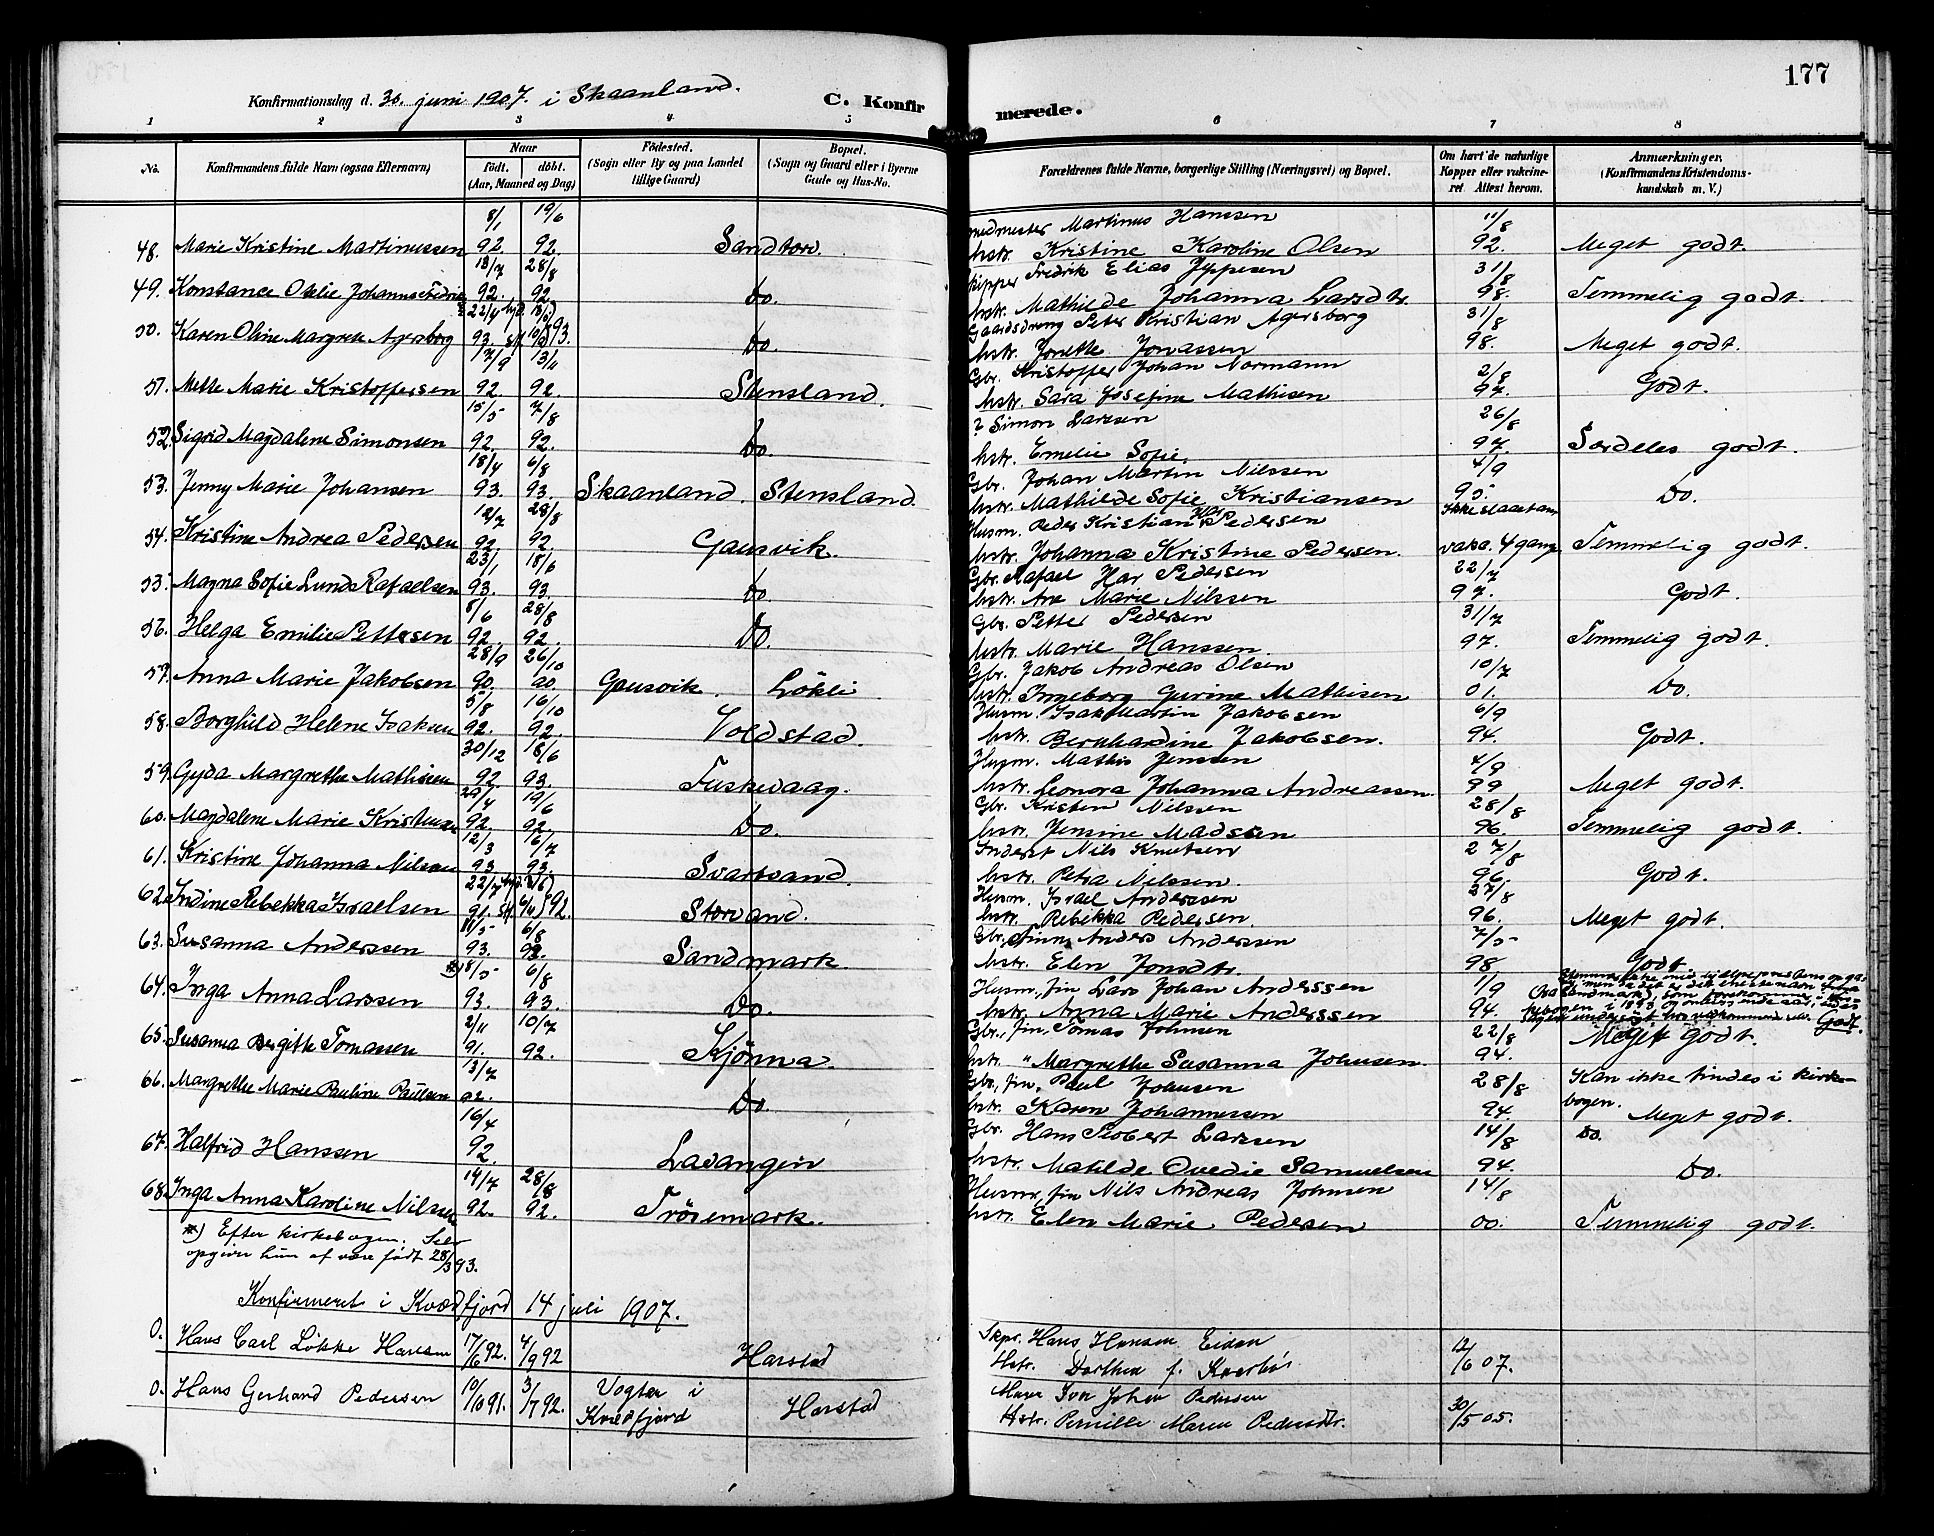 177
Konfirmationsdag d. 30. juni 1907. i Skaanland. C. Konfir merede.
1 2 3 4 5 6 7 8
No. Konfirmandens fulde Navn (ogsaa Efternavn) Naar födt. döbt. (Aar, Maaned og Dag) Födested. (Sogn eller By og paa Landet tillige Gaard) Bopæl. (Sogn og Gaard eller i Byerne Gade og Hus-No. Forældrenes fulde Navne, borgerlige Stilling (Næringsvei) og Bopæl. Om havt de naturlige Kopper eller vakcineret. Attest herom. Anmærkninger. (Konfirmandens Kristendomskundskab m. V.)
8/1 19/6 Martinus Hansen 11/8
48. Marie Kristine Martinussen 92. 92. Sandtorv. hstr. Kristine Karoline Olsen 92. Meget godt.
13/7 28/8 Skipper Fredrik Elias Jeppesen 31/8
49. Konstance Otelie Johanne 92. 92. Do. hstr. Mathilde Johanna Larsdtr. 98. Temmelig godt.
22/4 Gaardsdreng Peter Kristian Agersborg 31/8
50. Karen Oline Margrete Agersborg 93. 93. Do. hstr. Jonette Jonassen 98. Meget godt.
7/9 13/11 Gbr. Kristoffer Johan Normann 2/8
51. Mette Marie Kristoffersen 92. 92. Stensland. hstr. Sara Josefine Mathisen 97. Godt.
15/5 7/8 ? Simon Larsen 26/8
52. Sigrid Magdalene Simonsen 92. 92. Do. hstr. Emelie Sofie 97. Særdeles godt.
18/4 6/8 Gbr. Johan Martin Nilssen 4/9
53. Jenny Marie Johansen 93. 93. Skaanland. Stensland. hstr. Mathilde Sofie Kristiansen 95. Do.
12/7 28/8 Husm. Peder Kristian Pedersen Ikke slaaet an
54. Kristine Andrea Pedersen 92 92 Gausvik. hstr. Johanna Kristine Pedersen. vakc. 4 gang Temmelig godt.
23/1 18/6 Gbr. Rafael Har Pedersen 22/7
55. Magna Sofie Lund Rafaelsen 93. 93. Do. hstr. Ane Marie Nilssen 97. Godt.
8/6 28/8 Gbr. Petter Pedersen 31/7
56. Helga Emilie Pettersen 92. 92. Do. hstr. Marie Hanssen. 97. Temmelig godt.
28/9 26/10 Gbr. Jakob Andreas Olsen 10/7
57. Anna Marie Jakobsen 90. 90. Gausvik. Lökli hstr. Ingeborg Gurine Mathisen 01. Do.
5/8 16/10 Husm. Isak Martin Jakobsen 6/9
58. Borghild Helene Isaksen 92. 92. Voldstad. hstr. Bernhardine Jakobsen. 94. Godt.
30/12 18/6 Husm. Mathis Jenssen 4/9
59. Gyda Margrethe Mathisen 92 93. Fuskevaag. hstr. Leonora Johanna Andreassen. 99 Meget godt.
29/4 19/6 Gbr. Kristen Nilssen 28/8
60. Magdalene Marie Kristensen 92. 92. Do. hstr. Jensine Madsen 96. Temmelig godt.
12/3 16/7 Inderst Nils Knutsen 27/8
61. Kristine Johanna Nilssen 93 93. Svartvand. hstr. Petra Nilssen. 96. Godt.
22/7 Husm. Israel Anderssen 27/8
62. Indine Rebekka Israelsen 91. 92. Storvand. hstr. Rebekka Pedersen. 96. Meget godt.
11/5 6/8 Gbr. Anders Anderssen 7/5
63. Susanna Anderssen 93. 93. Sandmark. hstr. Elen Jonsdtr. 98 Godt
*) 8/5 6/8 Husm, fin Lars Johan Anderssen 1/9
64. Inga Anna Larssen 93. 93. Do. hstr. Anna Marie Anderssen 94. Godt.
2/11 10/7 Gbr., fin, Tomas Johnsen 22/8
65. Susanna Birgitte Tomassen 91. 92. Kjönna. hstr. " Margrethe Susanna Johnsen. 94. Meget Godt.
13/7 Gbr., fin, Paul Johnsen 28/8 Kan ikke findes i kirke-
66. Margrethe Marie Pauline Paulsen 92. Do. hstr. Karen Johannessen 94. bogen. Meget godt.
16/4 Gbr. Hans Robert Larssen 14/8 Do.
67. Halfrid Hanssen 92. Lavangen hstr. Matilde Ovedie Samuelsen 94. Do.
14/7 28/8 Husm, fin Nils Andreas Johnsen 14/8
68. Inga Anna Karoline Nilssen 92. 92. Trösemark. hstr. Elen Marie Pedersen 00. Temmelig godt.
*) Efter kirkebogen. Selv
opgiver hun at være født 28/3 93.
Konfirmeret i Kvædfjord 14 juli 1907.
0. Hans Carl Løkke Hansen 17/6 92. 4/9 92 Harstad Skpr. Hans Hansen Eidem Hstr. Dorthea f. Kvarbø 12/6 07.
0. Hans Gerhard Pedersen 10/10 91. 3/7 92. Vogter i Kvedfjord Harstad Murer Ivar Johan Pedersen Hstr. Pernille Maren Pedersdtr. 30/5 05.